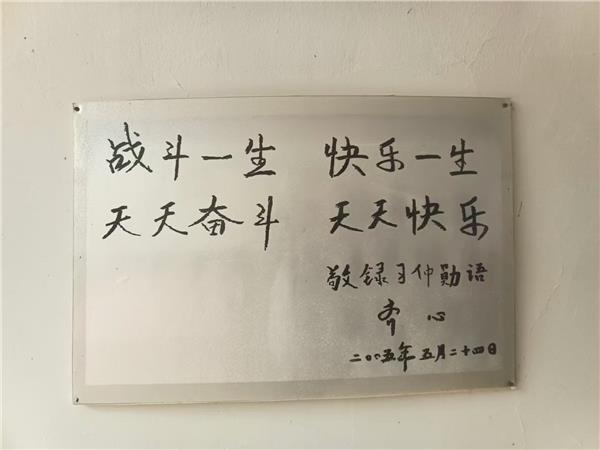 战斗一生 快乐一生
天天奋斗 天天快乐
敬录习仲勋语
齐心
二〇〇五年五月二十四日